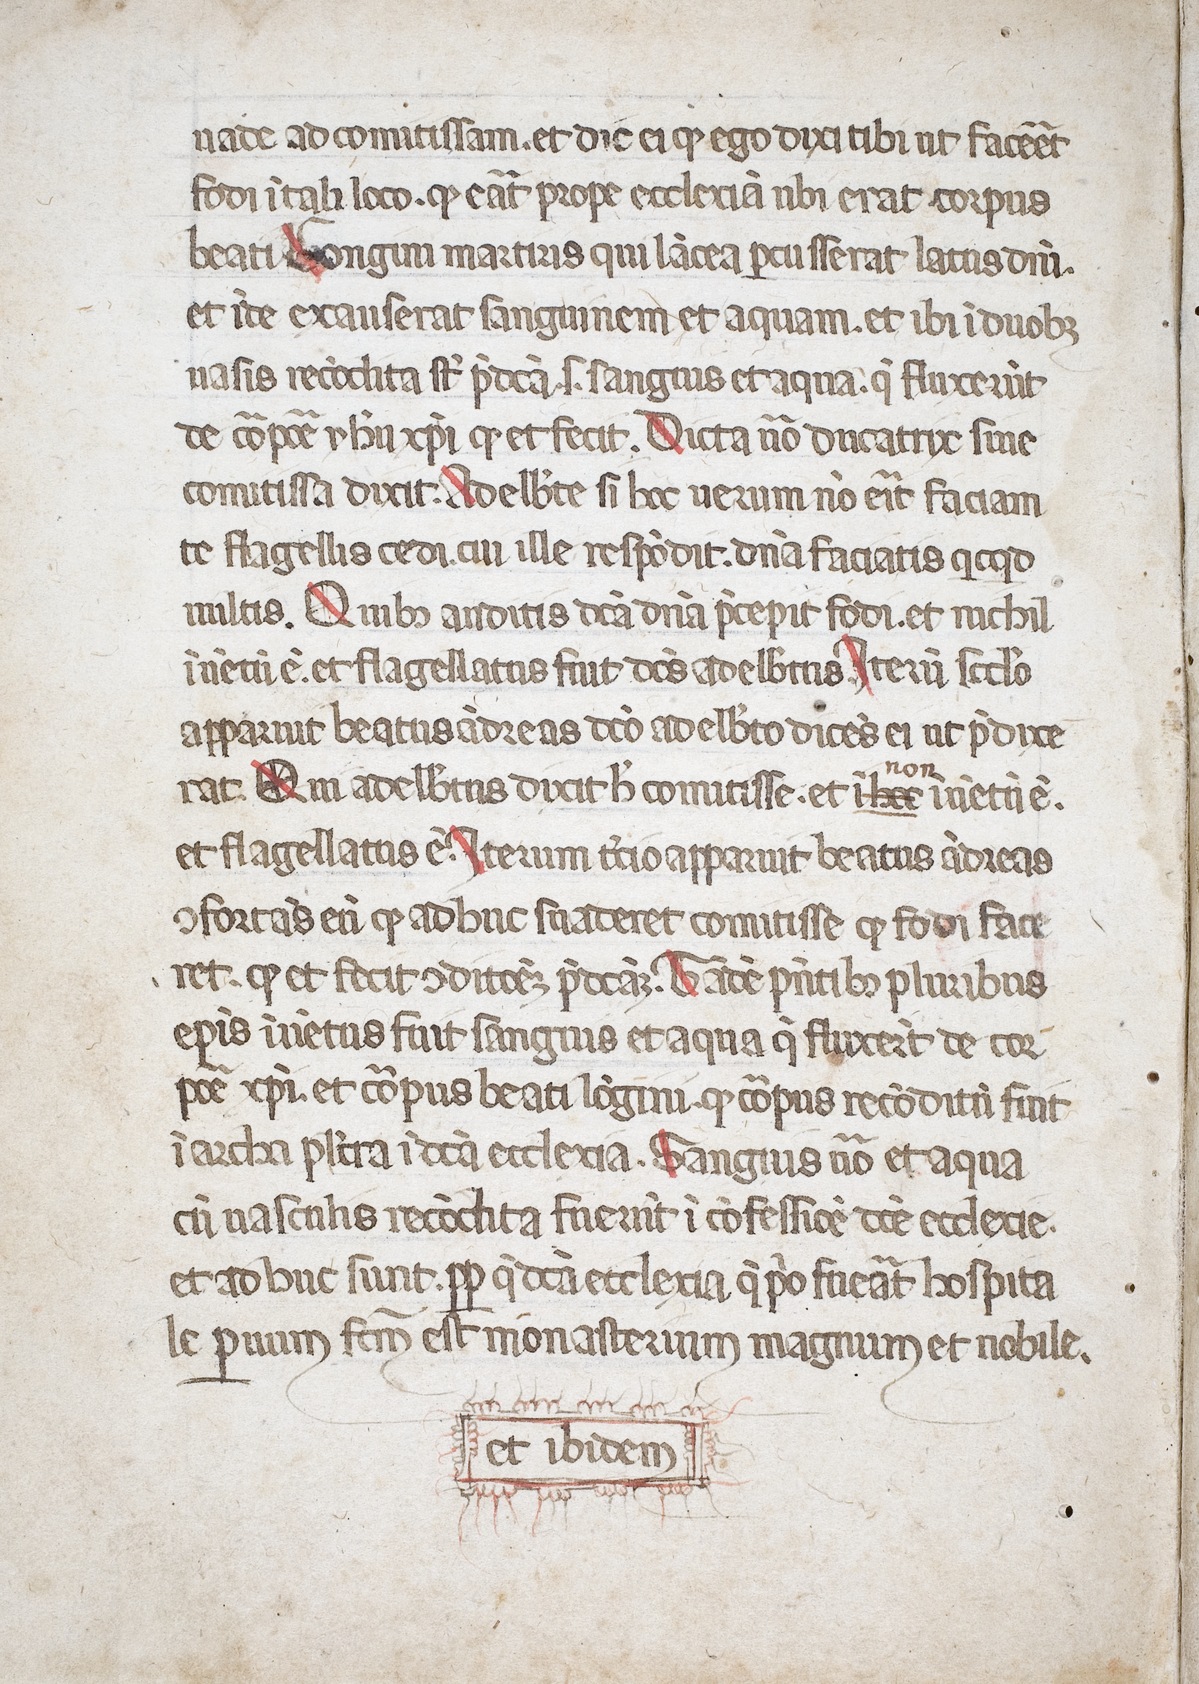 uade ad comitissam. et dic ei qȝ ego dixi tibi ut facēēt
fodi ī tali loco. qȝ eāt̄ prope ecclexiā ubi erat corpus
beati Longini martiris qui lācea ꝑcusserat latus dn̄i.
et īde exauserat sanguinem et aquam. et ibi ī duobꝫ
uasis recōdita st̄ p̄dcā .s. sanguis et aqua. q̄ fluxerūt
de cōꝑoē yhū xp̄i qȝ et fecit. Dicta ūo ducatrix siue
comitissa dixit. Adelb̄te si hec uerum nō eīt faciam
te flagellis cedi. cui ille respōdit. dn̄a faciatis qcqd
uultis. Quibꝫ auditis dcā dn̄a p̄cepit fodi. et nichil
īuētū ē. et flagellatus fuit dcs̄ adelb̄tus. Iterū scd̄o
apparuit beatus ādreas dcō adelb̄to dicēs ei ut p̄dixe
rat. Qui adelb̄tus dixit h̄ comitisse. et ī hec non īuētū ē.
et flagellatus ē. Iterum t̄cio apparuit beatus ādreas
ꝯfortās eū qȝ adhuc suaderet comitisse qȝ fodi face
ret. qȝ et fecit ꝯditōēꝫ p̄dcāꝫ. Tādē pn̄tibꝫ pluribus
ep̄is īuētus fuit sanguis et aqua q̄ fluxert̄ de cor
poē xp̄i. et cōpus beati lōgini. qȝ cōpus recōditū fuit
ī archa pl̄tra ī dcā ecclexia. Sanguis ūo et aqua
cū uasculis recōdita fuerūt ī cōfessiōē dcē ecclexie.
et adhuc sunt. ꝓꝑ q̄ dcā ecclexia q̄ p̄o fueāt̄ hospita
le ꝑuum fcm̄ est monasterium magnum et nobile.
et ibidem